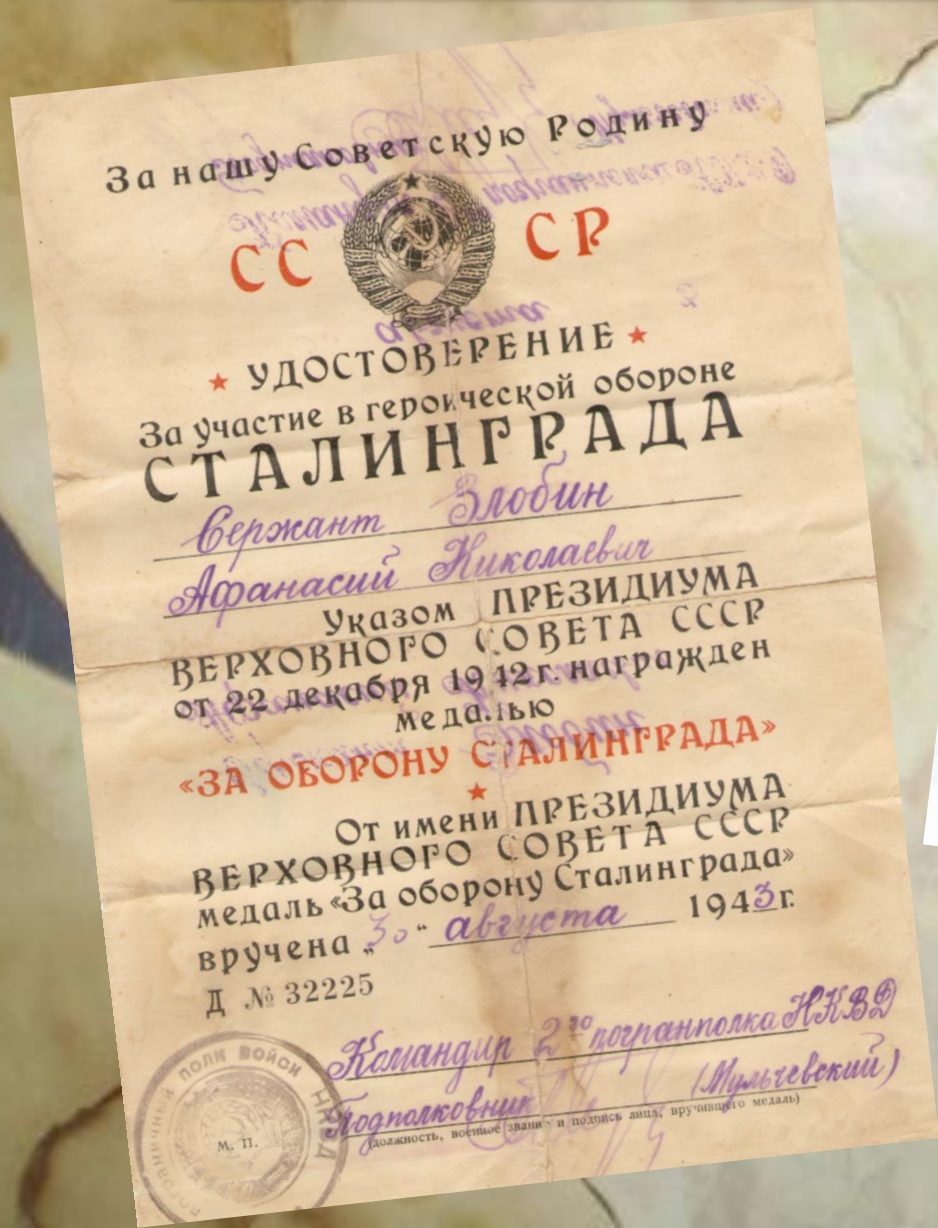 За нашу Советскую Родину
СС СР
УДОСТОВЕРЕНИЕ
За участие в героической обороне
СТАЛИНГРАДА
Сержант Злобин
Афанасий Николаевич
Указом ПРЕЗИДИУМА
ВЕРХОВНОГО СОВЕТА СССР
от 22 декабря 1942 г. награжден
медалью
«ЗА ОБОРОНУ СТАЛИНГРАДА»
От имени ПРЕЗИДИУМА
ВЕРХОВНОГО СОВЕТА СССР
медаль «За оборону Сталинграда»
вручена „30“ августа 1943 г.
Д № 32225
Командир 2го погранполка НКВД
Подполковник (Мульчевский)
(должность, военное звание и подпись лица, вручившего медаль)
ПОГРАНИЧНЫЙ ПОЛК ВОЙСК НКВД
М. П.